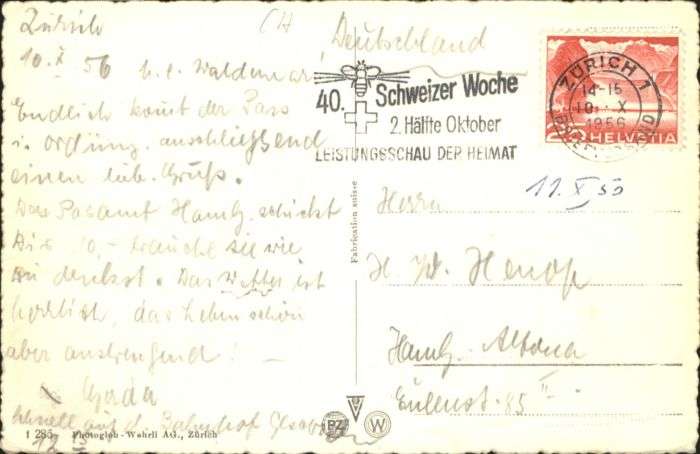 Zürich
10. X 56
CH
Deutschland
L. L. Waldemar,
Endlich kommt der Pass
i. Ordung. anschließend
einen lieb. Gruß.
Das Passamt Hambg. schickt
Dir 10,- brauche sie wie
Du denkst. Das Wetter ist
herrlich, das Leben schön
aber anstrengend! –
Gerda
schnell auf d. Bahnhof
1 285 Photoglob-Wehrli AG., Zürich
40. Schweizer Woche
2. Hälfte Oktober
LEISTUNGSSCHAU DER HEIMAT
ZÜRICH 1
14-15
10. X
1956
HELVETIA
Fabrication suisse
11. X 56
Herrn
H. W. Henop
Hambg. Altona
Eulenst. 85 II
PZ W